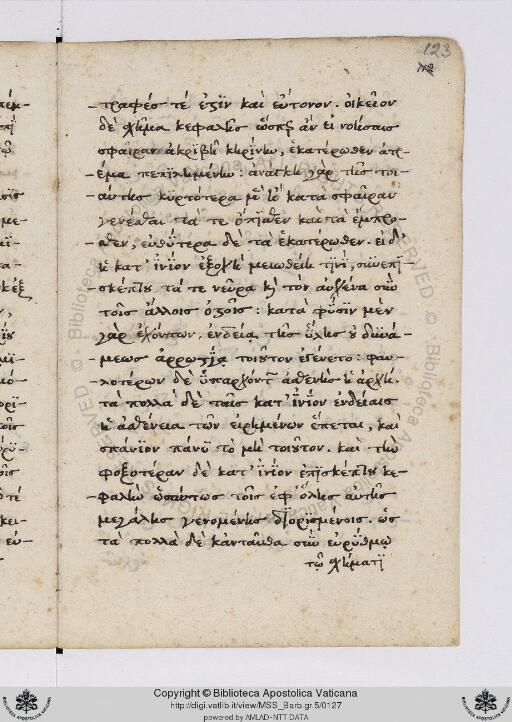 123
τραφές τέ ἐστὶν καὶ εὔτονον. οἰκεῖον
δὲ σχῆμα κεφαλῆς ὥσπερ ἂν εἰ νοήσαις
σφαῖραν ἀκριβῆ κηρίνην, ἑκατέρωθεν ἀτρ
έμα πεπιλημένην: ἀνάγκη γὰρ τῆς τοι
αύτης κυρτότερα μὲν ἢ κατὰ σφαῖραν
γενέσθαι τά τε ὄπισθεν καὶ τὰ ἔμπρο
σθεν, εὐθύτερα δὲ τὰ ἑκατέρωθεν. εἰ δ'
ἡ κατ' ἰνίον ἐξοχὴ μειωθείη τινί, συνεπι
σκέπτου τά τε νεῦρα καὶ τὸν αὐχένα σὺν
τοῖς ἄλλοις ὀστοῖς: κατὰ φύσιν μὲν
γὰρ ἐχόντων, ἔνδεια τῆς ὕλης οὐ δυνά
μεως ἀρρωστία τοιοῦτον ἐγένετο: φαυ
λοτέρων δὲ ὑπαρχόντων ἀσθενὴς ἡ ἀρχή.
τὰ πολλὰ δὲ ταῖς κατ' ἰνίον ἐνδείαις
ἡ ἀσθένεια τῶν εἰρημένων ἕπεται, καὶ
σπάνιον πάνυ τὸ μὴ τοιοῦτον. καὶ τὴν
φοξοτέραν δὲ κατ' ἰνίον ἐπισκέπτου κε
φαλὴν ὡσαύτως τοῖς ἐφ' ὅλης αὐτῆς
μεγάλης γενομένης διορισμένοις. ὡς
τὰ πολλὰ δὲ κἀνταῦθα σὺν εὐρύθμῳ
τῷ σχήματι
Copyright © Biblioteca Apostolica Vaticana
http://digi.vatlib.it/view/MSS_Barb.gr.5/0127
powered by AMLAD-NTT DATA